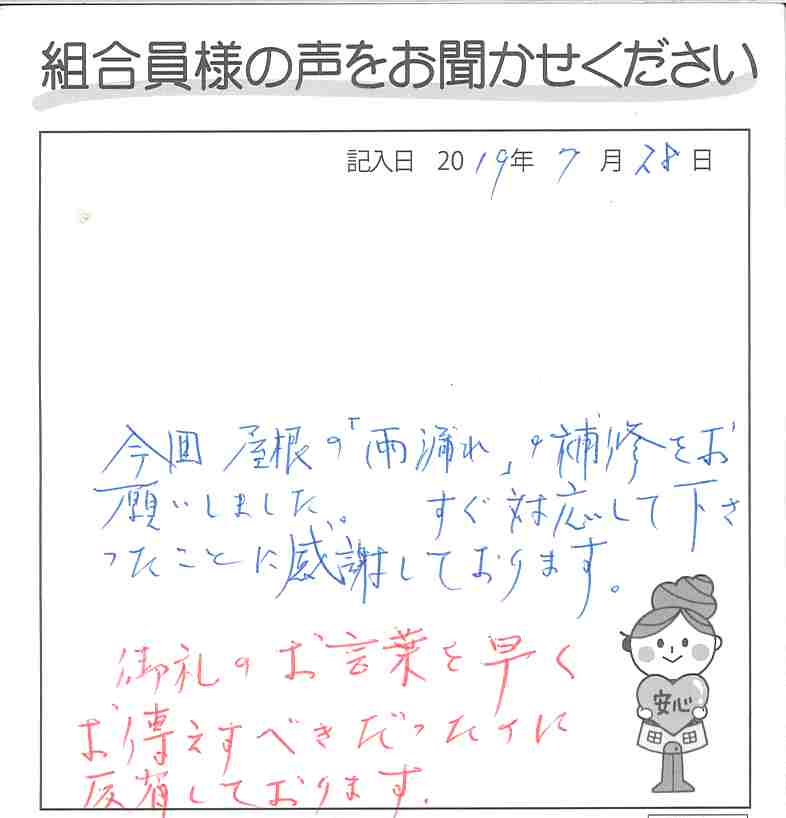 組合員様の声をお聞かせください
記入日 2019年 7月28日
今回 屋根の「雨漏れ」の補修をお
願いしました。 すぐ対応して下さ
ったことに感謝しております。
御礼のお言葉を早く
お傳えすべきだったイに
反省しております.
安心